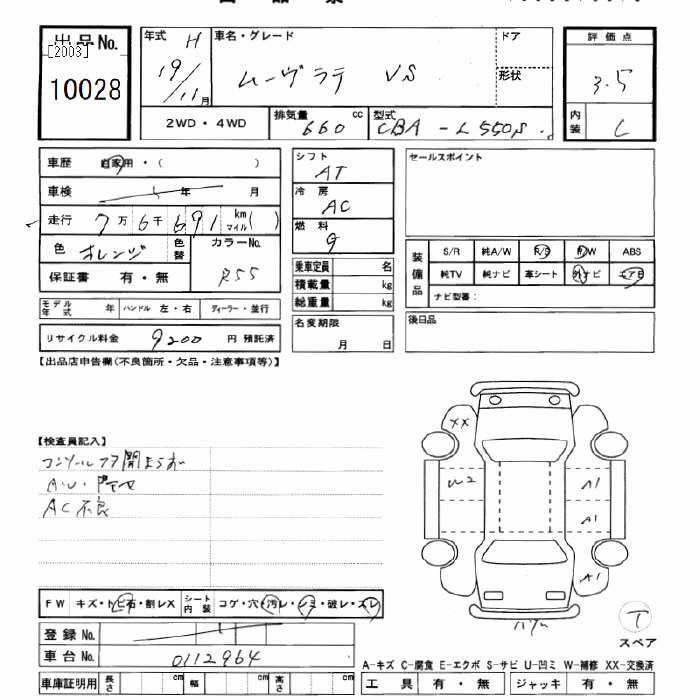 出品No.
[2003]
10028
年式 H
19/11月
車名・グレード
ムーヴラテ VS
ドア
形状
評価点
3.5
内装 C
2WD・4WD
排気量 660 cc
型式 CBA-L550S
車歴 自家用・( )
車検 年 月
走行 7万6千691 km マイル( )
色 オレンジ 色替
カラーNo. R55
保証書 有・無
モデル年式 年 ハンドル 左・右 ディーラー・並行
リサイクル料金 9200 円 預託済
シフト AT
冷房 AC
燃料 g
乗車定員 名
積載量 kg
総重量 kg
名変期限
月 日
セールスポイント
装備品
S/R 純A/W P/S P/W ABS
純TV 純ナビ 革シート 外ナビ エアB
ナビ型番:
後日品
【出品店申告欄(不良箇所・欠品・注意事項等)】
【検査員記入】
AC不良
FW キズ・トビ石・割レX
シート内装 コゲ・穴・汚レ・シミ・破レ・スレ
登録No.
車台No. 0112964
車庫証明用 長さ cm 幅 cm 高さ cm
XX
W2
A1
A1
A1
T
スペア
A-キズ C-腐食 E-エクボ S-サビ U-凹ミ W-補修 XX-交換済
工具 有・無 ジャッキ 有・無